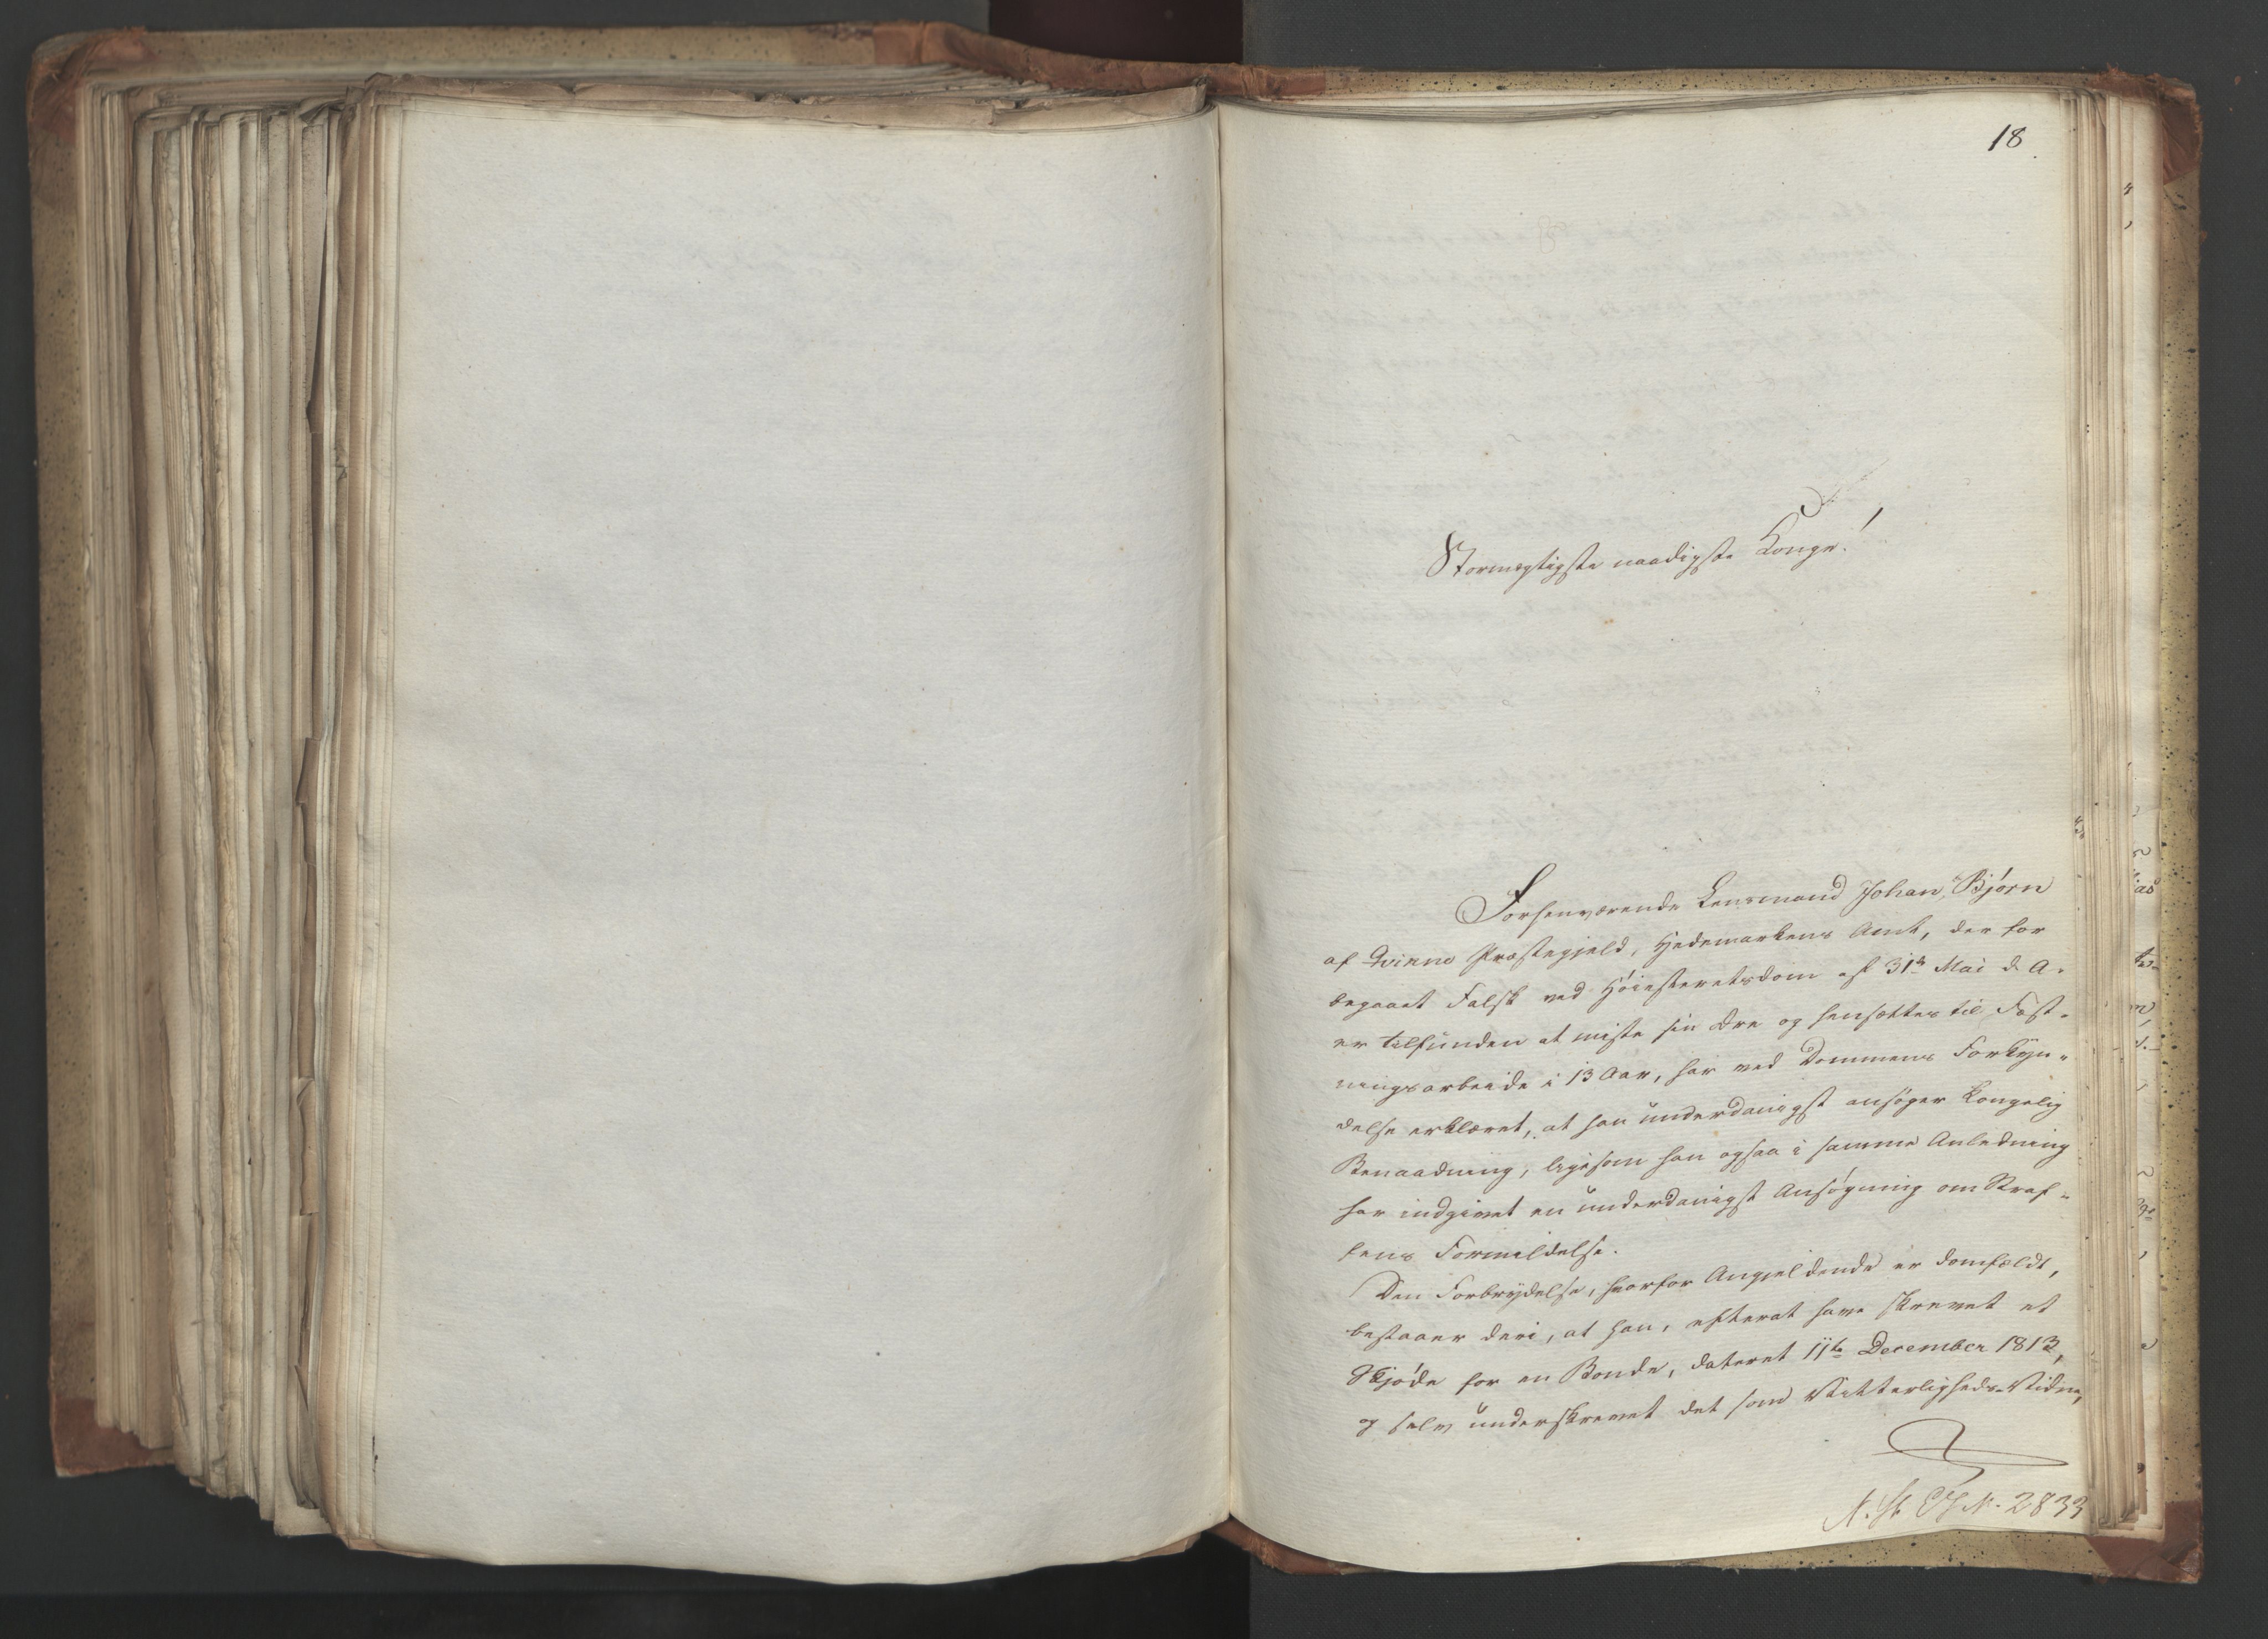 18
Stormægtigste naadigste Konge!
Forhenværende Lensmand Johan Bjørn
af Qvikne Præstegjeld, Hedemarkens Amt, der for
begaaet Falsk ved Høiesteretsdom af 31te Mai d. A.
er tilfunden at miste sin Ære og hensættes til Fæst-
ningsarbeide i 13 Aar, har ved Dommens Forkyn-
delse erklæret, at han underdanigst ansøger Kongelig
Benaadning, ligesom han ogsaa i samme Anledning
har indgivet en underdanigst Ansøgning om Straf-
fens Formildelse.
Den Forbrydelse, hvorfor Angjeldende er domfældt,
bestaaer deri, at han, efterat have skrevet et
Skjøde for en Bonde, dateret 11te December 1813,
og selv underskrevet det som Vitterligheds-Vidne,
N. St. Ex. N. 2833